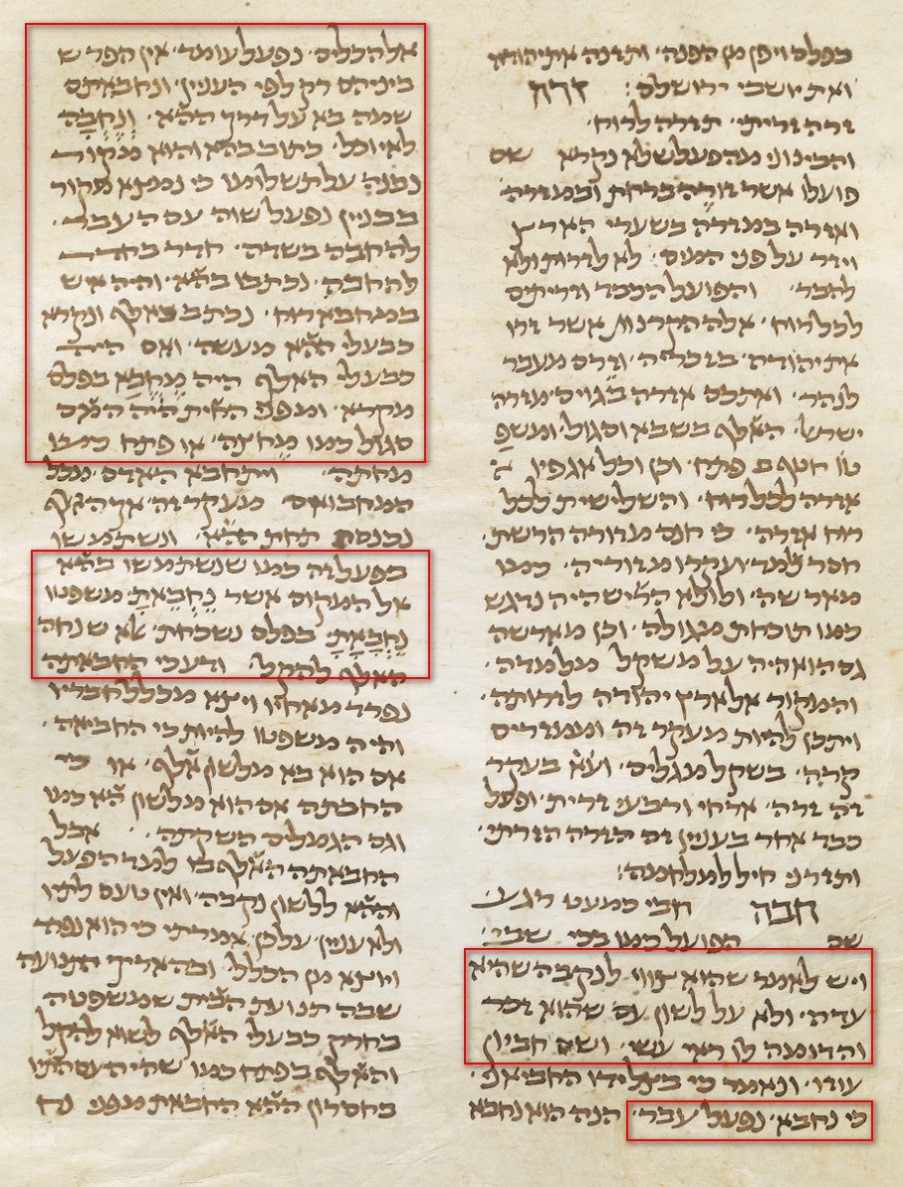 בפלס ויפן מן הפנה ותזנה את יהודה
ואת יושבי ירושלם: זרה
זרה זריתי תזרה לרוח
והבינוני מהפעל שלא נקרא שם
פועלו אשר זורה ברחת ובמזרה
ואזרה במזרה בשערי הארץ
ויזר על פני המים לא לזרות ולא
להבר והפועל הכבד וזריתים
לכל רוח אלה הקרנות אשר זרו
את יהודה בזכריה וזרם מעבר
לנהר ואתכם אזרה בגוים מזרה
ישראל האלף בשבא וסגול ומשפ
טו חטף פתח וכן וכל אגפיו
אזרה לכל רוח והשלישית לכל
רוח אזרה כי חנם מזורה הרשת
חסר למד ועקרו מזוריה כמו
ולולא הריש היה נדגש
כמו תוכחת מגולה וכן
גם הוא היה על משקל מזרה
והמקור אל ארץ יהודה לזרותה
ויתכן להיות מעקר זה וממזרים
קרה בשקל מגלים בעקר
זה זרה ארחי ורבעי זרית ופעל
כבד אחר בעניין זה תזרה הזרתי
ותזרני חיל למלחמה:
חבה חבי כמעט רגע
שם הפועל כמו בכי שבי
ויש לאמר שהוא צווי לנקבה שהיא
עדה ולא על לשון עם שהוא זכר
והדומה לו ראי עשי ושם חביון
עזו ונאמר כי החביאני
כי נחבא נפעל עבר הנה הוא נחבא
אל הכלים נפעל עומד אין הפרש
ביניהם רק לפי העניין ונחבאתם
שמה בא על דרך ההא וְנֶחְבָּה
לא יוכל כתוב בהא והוא מקור
נבנה על תשלומו כי נמצא מקור
בבניין נפעל שוה עם העבר
להחבה בשדה חדר בחדר
להחבה נכתבו בהא והיה איש
כמחבא רוח נכתב באלף ונקרא
כבעלי ההא מעשה ואם היה
כבעלי האלף היה מַחֲבָא בפלס
מקרא ומפני החית היה המם
סגול כמו מחצה או פתח כמו
מחתה ויתחבא האדם מכל
המחבואים מעקר זה אך האלף
נכנסת תחת ההא ונשתמשו
בפעל זה כמו שנשתמשו בהא
אל המקום אשר נֶחְבֵּאתָ משפטו
נֶחְבָּאתָ בפלס נשכחת אלא שנחה
האלף להקל ודע כי החבאתה
נפרד מאחיו ויצא מכלל חבריו
והיה משפטו להיות כי החביאה
אם הוא בא מלשון אלף או כי
החבתה אם הוא מלשון הא כמו
וגם הגמלים השקתה אבל
החבאתה האלף בו למד הפעל
וההא ללשון נקבה ואין טעם לתיו
ולא עניין על כן אמרתי כי הוא נפרד
ויוצא מן הכלל ובהאריך התנועה
שבה תנועת הבית שמשפטה
בחרק כבעלי האלף לשוא להקל
והאלף בפתח כמו שהיה עם התיו
בחסרון ההא החבאת מפני נח